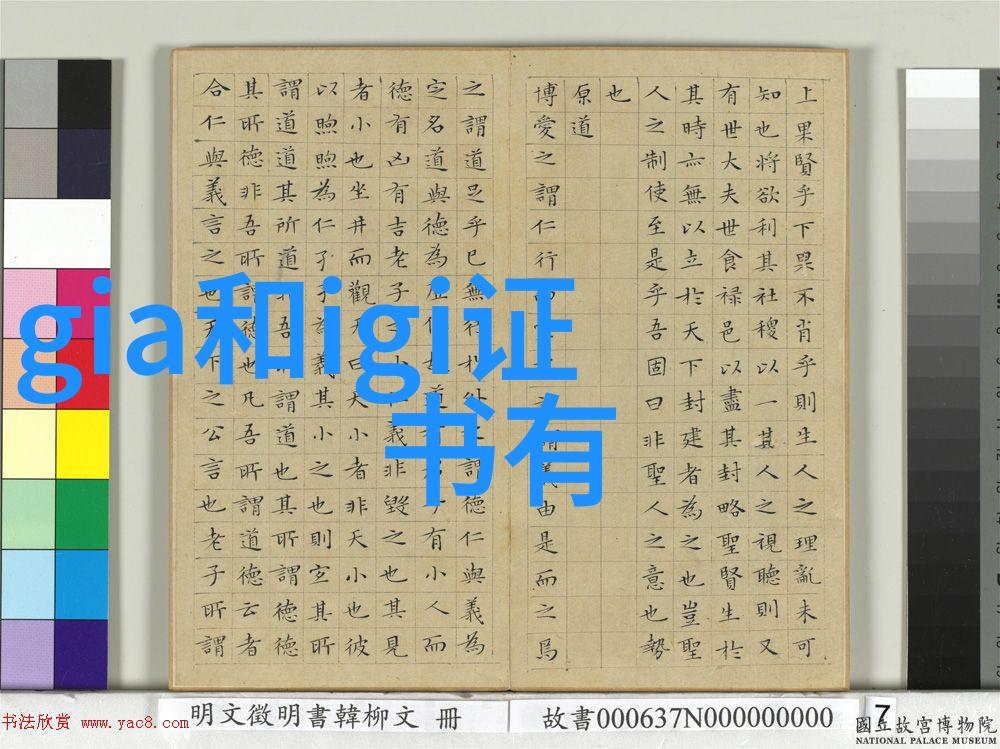 上果賢乎下果不肖乎則生人之理亂未可
知也將欲利其社稷以一其人之視聽則又
有世大夫世食祿邑以盡其封略聖賢生於
其時亦無以立於天下封建者為之也豈聖
人之制使至是乎吾固曰非聖人之意也勢
也
原道
博愛之謂仁行由是而之焉
之謂道足乎己無待於外之謂德仁與義為
定名道與德為虛有小人而
德有凶有吉老子之小仁義非毀之也其見
者小也坐井而觀天曰天小者非天小也彼
以煦煦為仁孑孑為義其小之也則宜其所
謂道道其所道非吾所謂道也其所謂德德
其所德非吾所謂德也凡吾所謂道德云者
合仁與義言之也天下之公言也老子所謂
gia和igi证
书有
明文徵明書韓柳文 冊
故書000637N000000000
7
國立故宮博物院
NATIONAL PALACE MUSEUM
书法欣赏 www.yac8.com